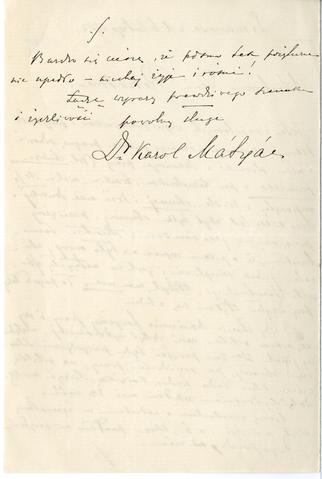 Bardzo się cieszę, że pismo tak pożyteczne
nie upadło – niechaj żyje i rośnie!
Łączę wyrazy prawdziwego szacunku
i życzliwości powolny sługa
Dr Karol Mátyás